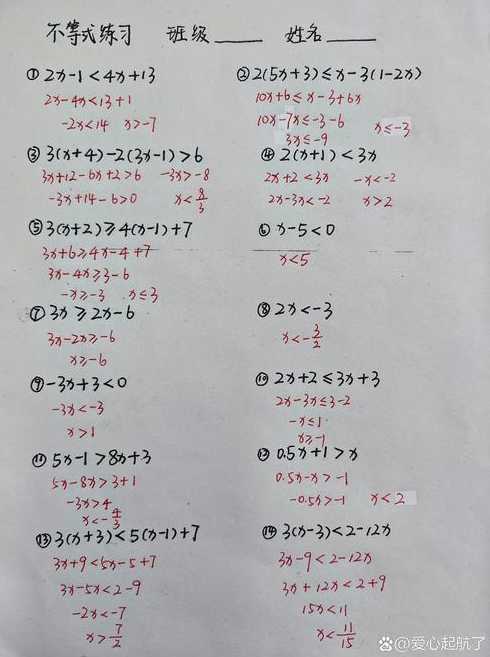 不等式练习 班级 姓名
① 2x-1<4x+13
2x-4x<13+1
-2x<14 x>-7
② 2(5x+3)≤x-3(1-2x)
10x+6≤x-3+6x
10x-7x≤-3-6
3x≤-9 x≤-3
③ 3(x+4)-2(3x-1)>6
3x+12-6x+2>6 -3x>-8
-3x+14-6>0 x<8/3
④ 2(x+1)<3x
2x+2<3x -x<-2
2x-3x<-2 x>2
⑤ 3(x+2)≥4(x-1)+7
3x+6≥4x-4+7
3x-4x≥3-6
-x≥-3 x≤3
⑥ x-5<0
x<5
⑦ 3x≥2x-6
3x-2x≥-6
x≥-6
⑧ 2x<-3
x<-3/2
⑨ -3x+3<0
-3x<-3
x>1
⑩ 2x+2≤3x+3
2x-3x≤3-2
-x≤1
x≥-1
⑪ 5x-1>8x+3
5x-8x>3+1
-3x>4
x<-4/3
⑫ 0.5x+1>x
0.5x-x>-1
-0.5x>-1 x<2
⑬ 3(x+3)<5(x-1)+7
3x+9<5x-5+7
3x-5x<2-9
-2x<-7
x>7/2
⑭ 3(x-3)<2-12x
3x-9<2-12x
3x+12x<2+9
15x<11
x<11/15
@爱心起航了